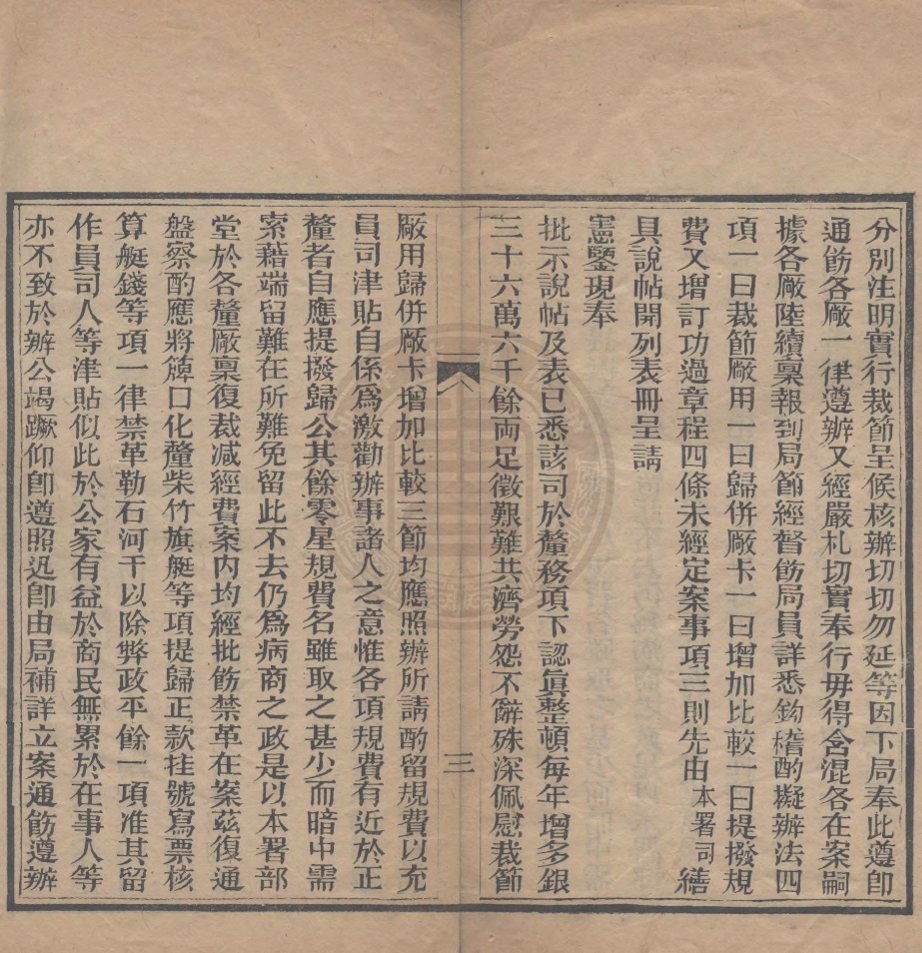 分別注明實行裁節呈候核辦切切勿延等因下局奉此遵卽
通飭各廠一律遵辦又經嚴札切實奉行毋得含混各在案嗣
據各廠陸續稟報到局節經督飭局員詳悉鈎稽酌擬辦法四
項一曰裁節廠用一曰歸併廠卡一曰增加比較一曰提撥規
費又增訂功過章程四條未經定案事項三則先由本署司繕
具說帖開列表冊呈請
憲鑒現奉
批示說帖及表已悉該司於釐務項下認眞整頓每年增多銀
三十六萬六千餘兩足徵艱難共濟勞怨不辭殊深佩慰裁節
三
廠用歸併廠卡增加比較三節均應照辦所請酌留規費以充
員司津貼自係爲激勸辦事諸人之意惟各項規費有近於正
釐者自應提撥歸公其餘零星規費名雖取之甚少而暗中需
索藉端留難在所難免留此不去仍爲病商之政是以本署部
堂於各釐廠稟復裁減經費案內均經批飭禁革在案茲復通
盤察酌應將簰口化釐柴竹旗艇等項提歸正款挂號寫票核
算艇錢等項一律禁革勒石河干以除弊政平餘一項准其留
作員司人等津貼似此於公家有益於商民無累於在事人等
亦不致於辦公竭蹶仰卽遵照迅卽由局補詳立案通飭遵辦